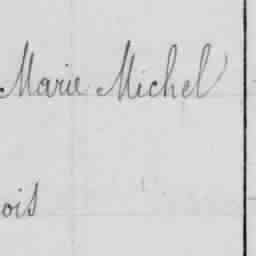 Marie Michel
ois